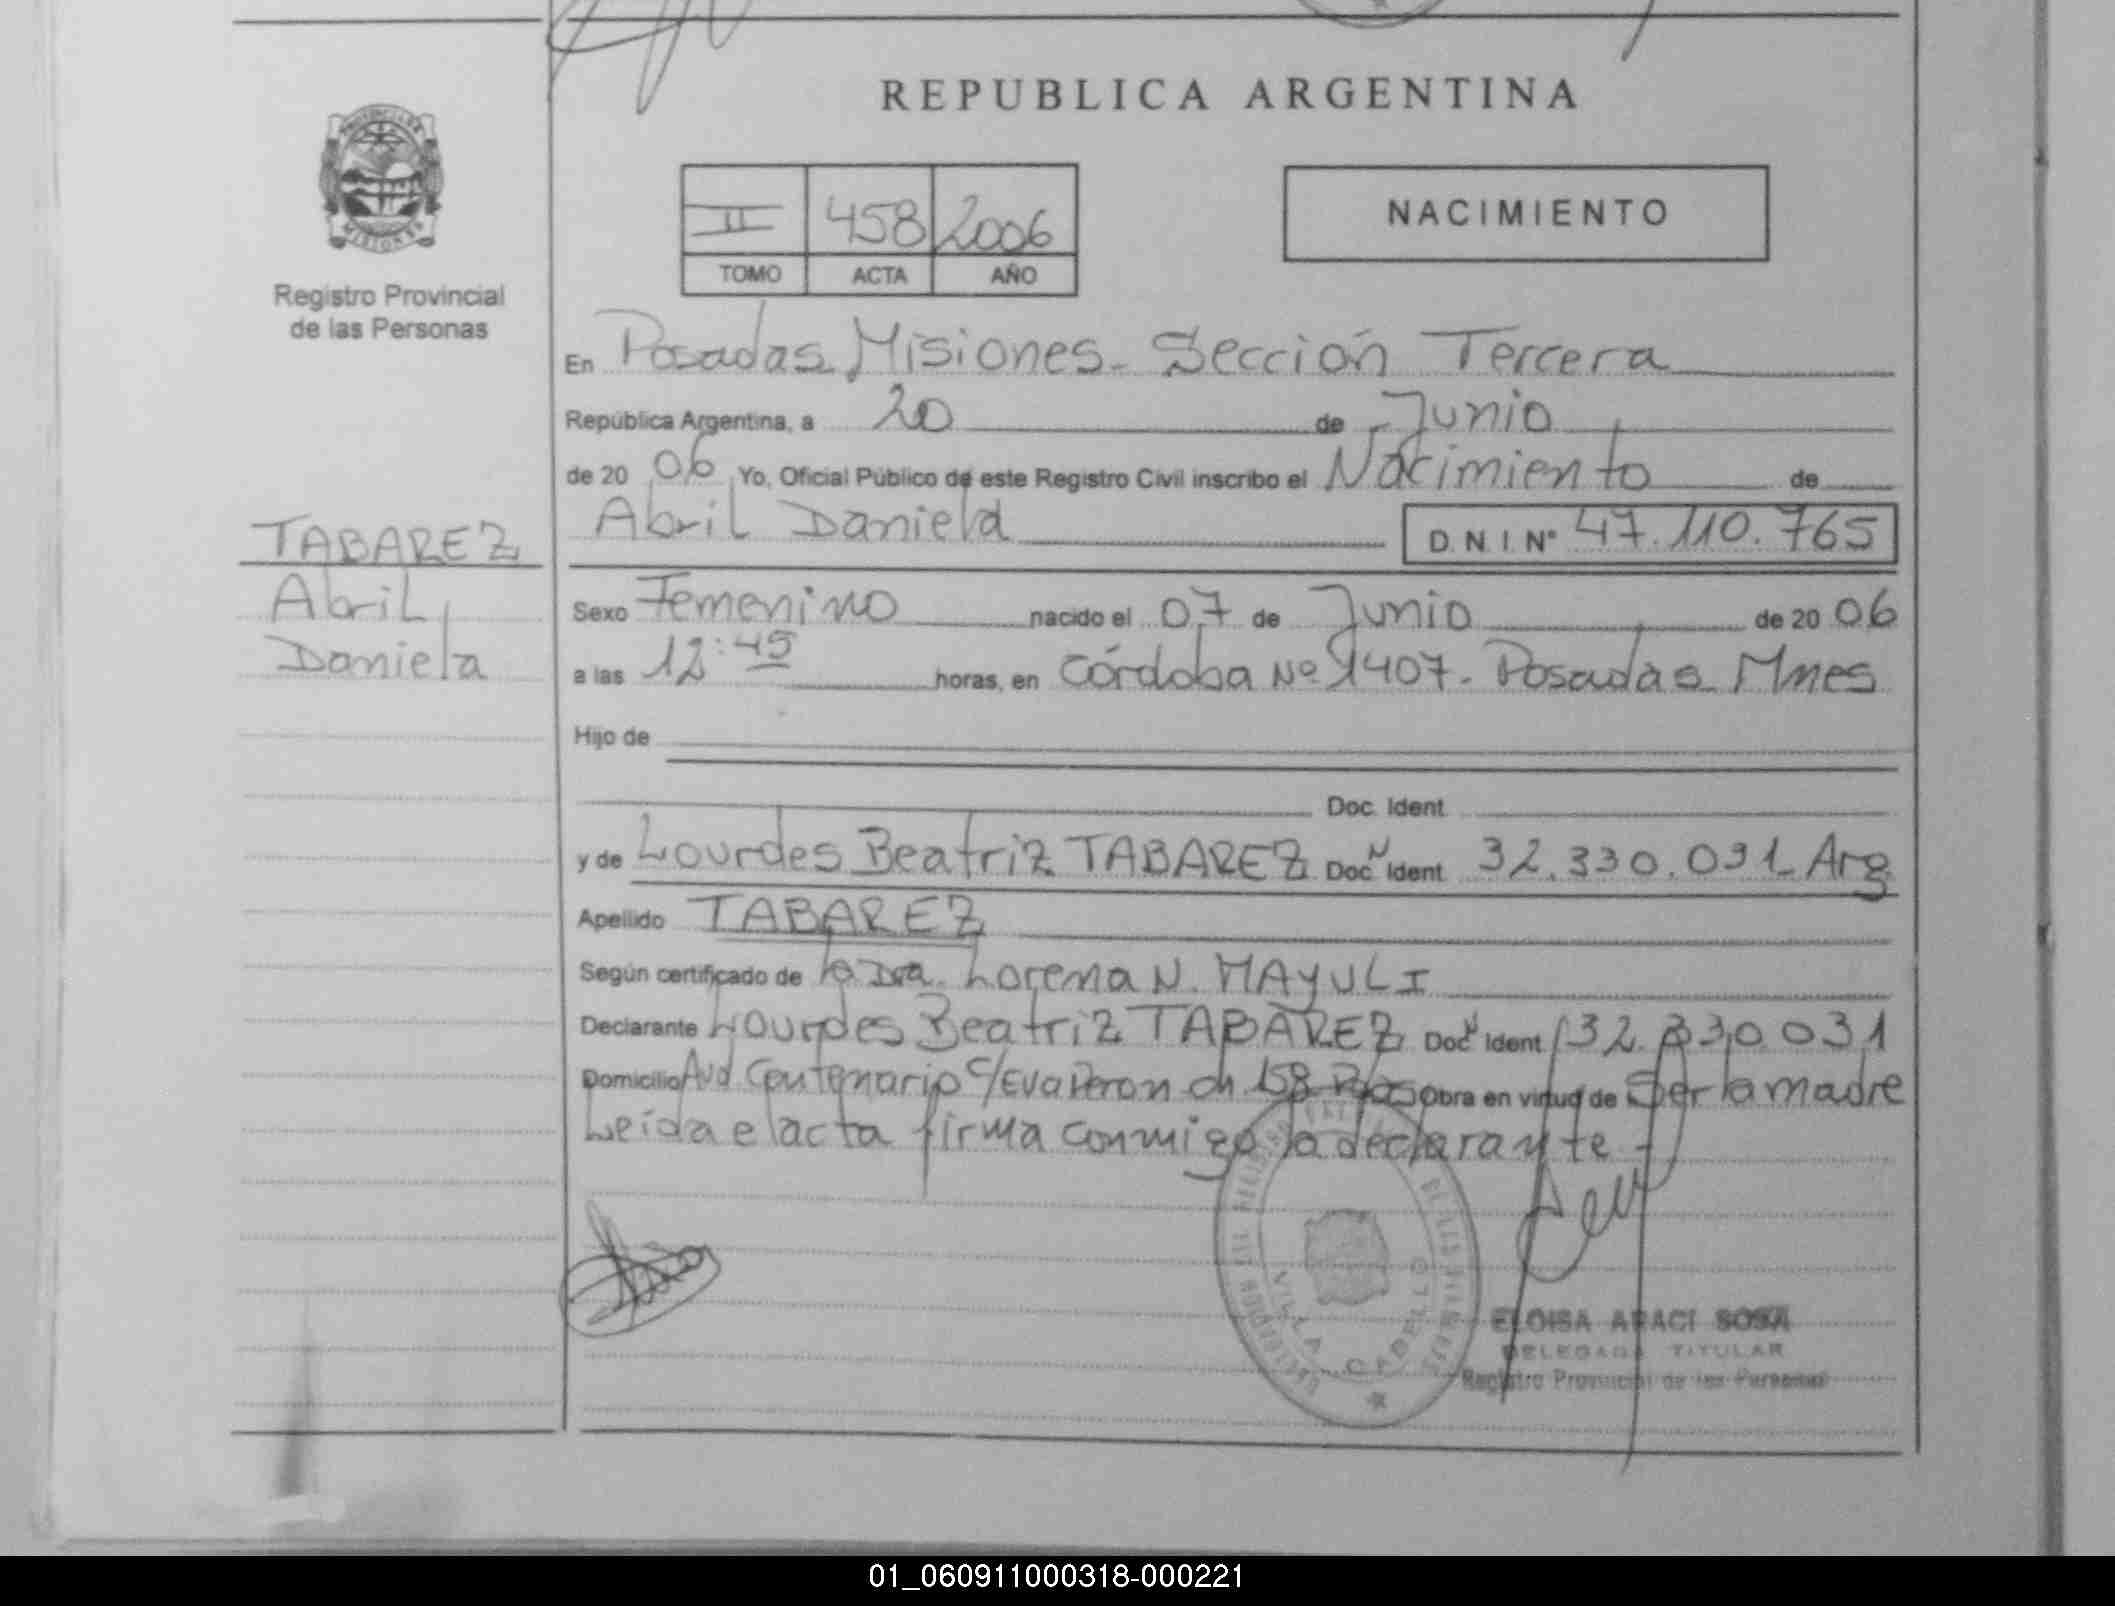 REPUBLICA ARGENTINA
PROVINCIA DE
MISIONES
Registro Provincial
de las Personas
II 458 2006
TOMO ACTA AÑO
NACIMIENTO
TABAREZ
Abril
Daniela
En Posadas Misiones - Sección Tercera
República Argentina, a 20 de Junio
de 20 06 Yo, Oficial Público de este Registro Civil inscribo el Nacimiento de
Abril Daniela D.N.I. Nº 47.110.765
Sexo Femenino nacido el 07 de Junio de 20 06
a las 12:45 horas, en Córdoba Nº 1407. Posadas Mnes
Hijo de
Doc. Ident.
y de Lourdes Beatriz TABAREZ Doc N Ident 32.330.031 Arg
Apellido TABAREZ
Según certificado de la Dra. Lorena N. MAYULI
Declarante Lourdes Beatriz TABAREZ Doc N Ident 32.330.031
Domicilio Avd Centenario c/Eva Peron ch 158 Pdas Obra en virtud de Ser la madre
Leída el acta firma conmigo la declarante -
VILLA CABELLO
ELOISA ARACI SOSA
DELEGADA TITULAR
Registro Provincial de las Personas
01_060911000318-000221